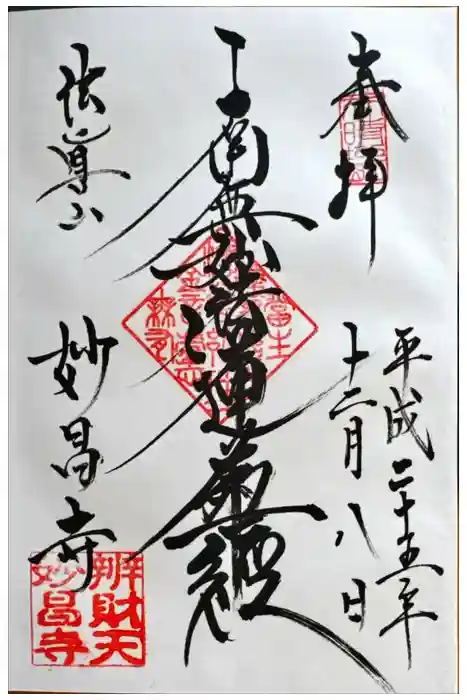 奉拝
平成二十五年
十二月八日
南無妙法蓮華経
法眞山
妙昌寺
辨財天
妙昌寺